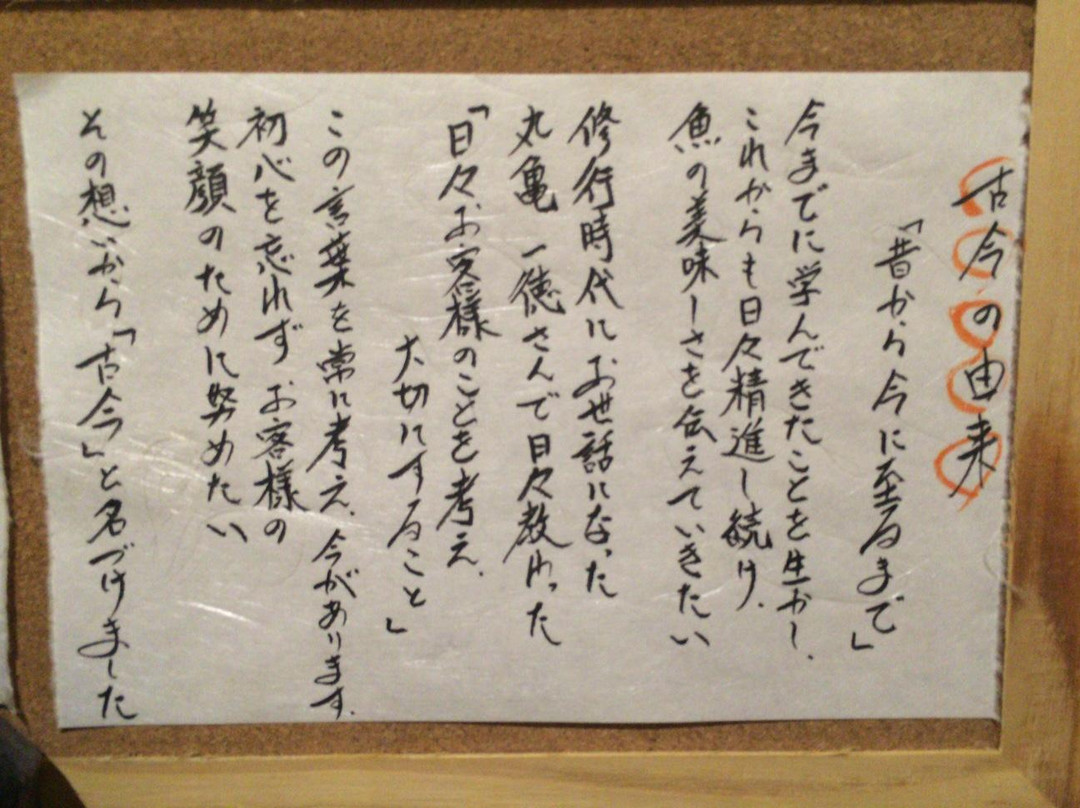 古今の由来
「昔から今に至るまで」
今までに学んできたことを生かし、
これからも日々精進し続け、
魚の美味しさを伝えていきたい
修行時代にお世話になった
丸亀 一徳さんで日々教わった
「日々お客様のことを考え、
大切にすること」
この言葉を常に考え、今があります。
初心を忘れず お客様の
笑顔のために努めたい
その想いから「古今」と名づけました